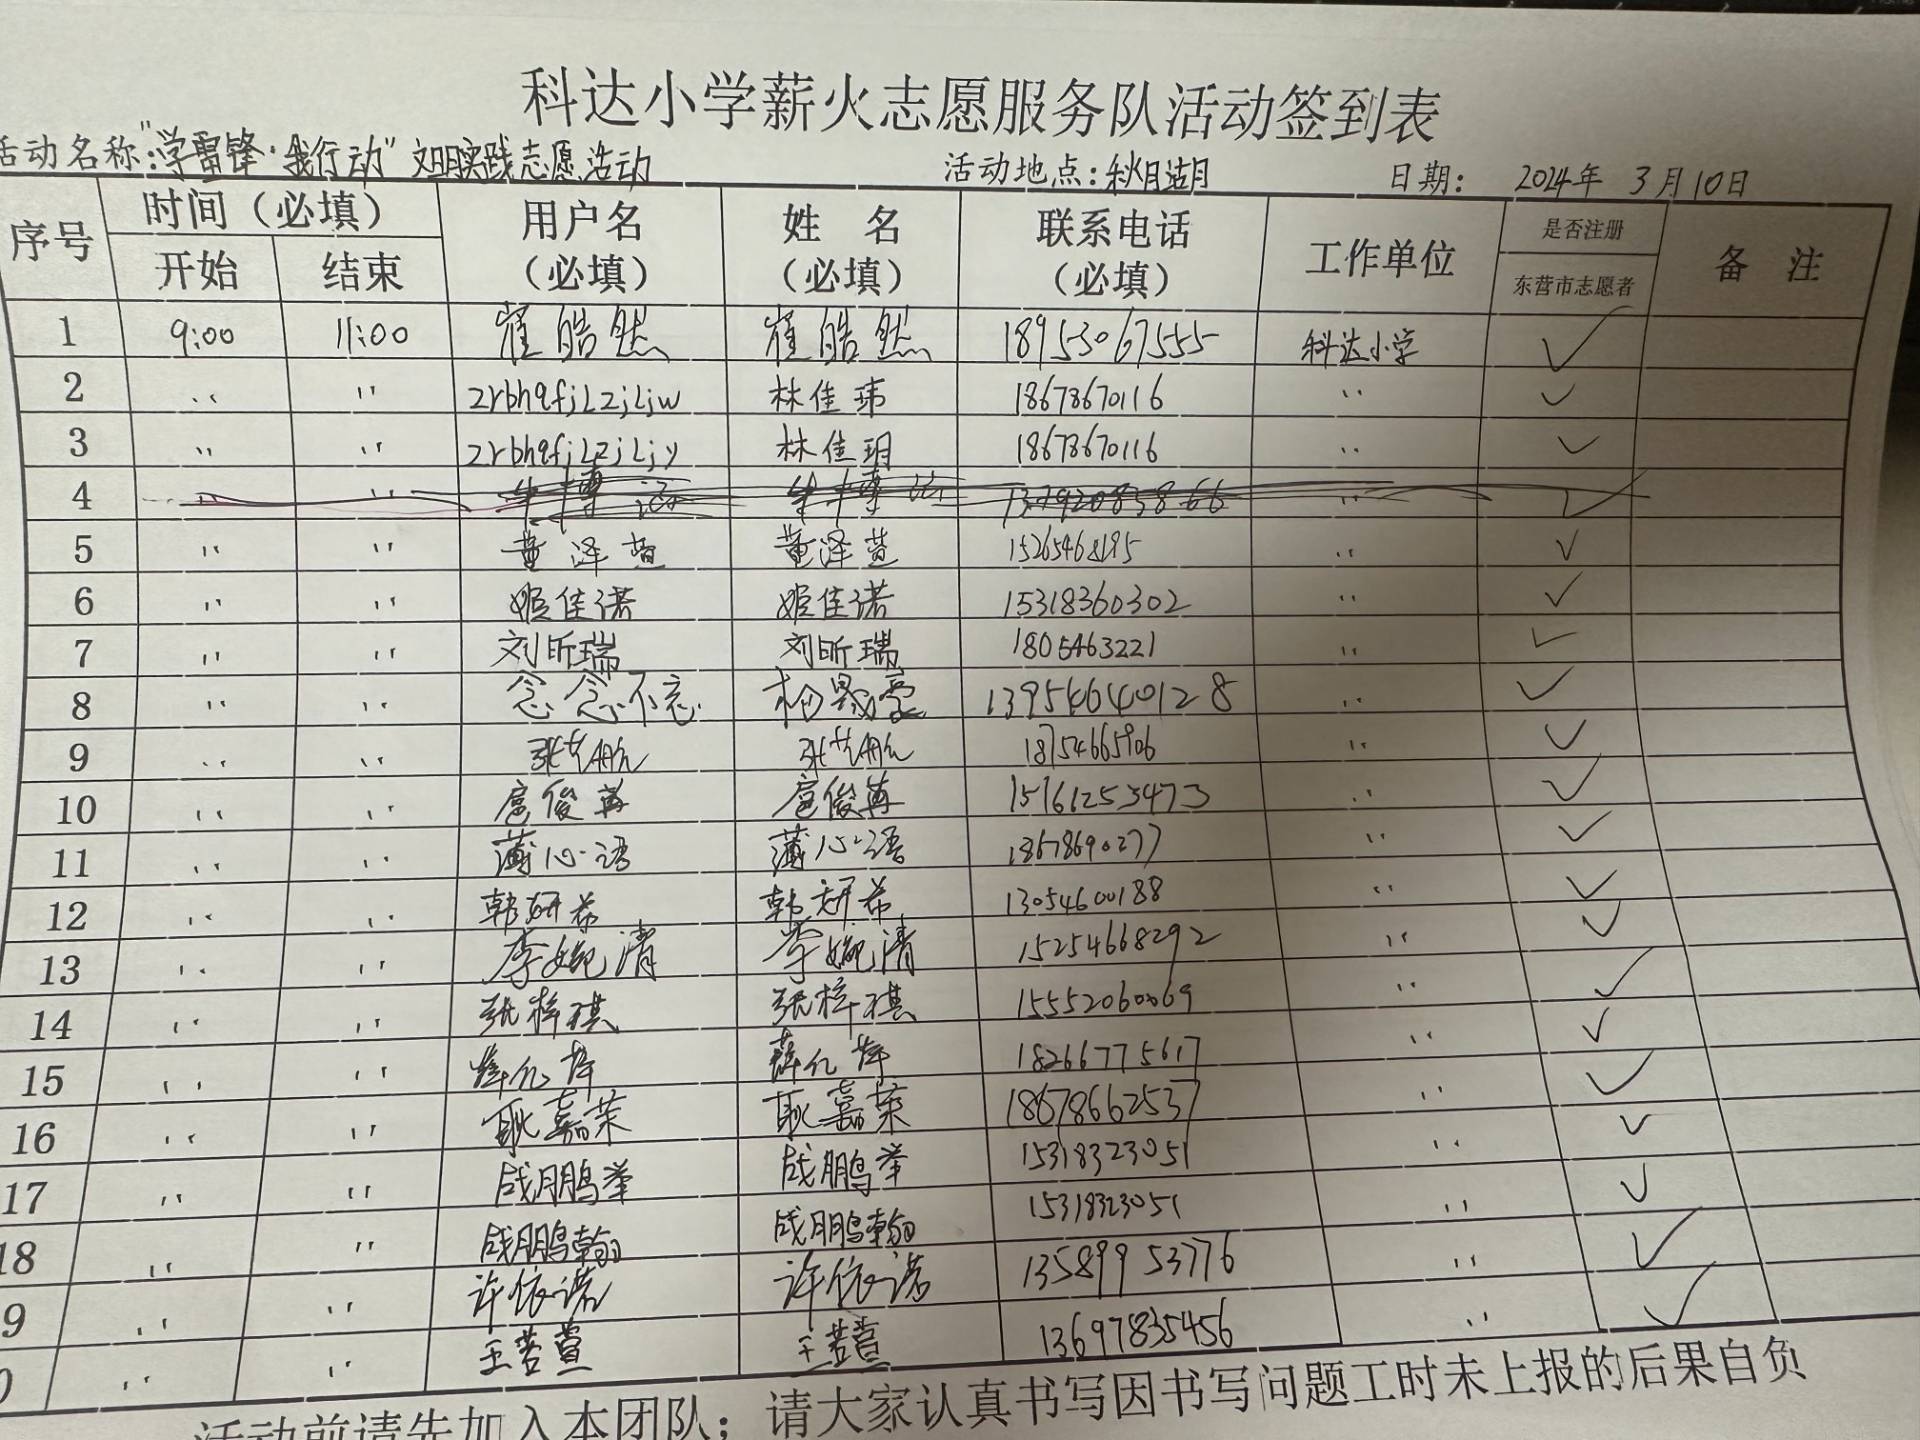 科达小学薪火志愿服务队活动签到表
活动名称:"学雷锋·我行动"文明实践志愿活动 活动地点:秋月湖 日期: 2024年 3月10日
序号 时间(必填) 用户名(必填) 姓 名(必填) 联系电话(必填) 工作单位 是否注册 备 注
开始 结束 东营市志愿者
1 9:00 11:00 崔皓然 崔皓然 18953067555 科达小学 ✓
2 〃 〃 zrbhqfjLzjLjw 林佳玮 18678670116 〃 ✓
3 〃 〃 zrbhqfjLzjLjy 林佳玥 18678670116 〃 ✓
4 〃 〃 〃
5 〃 〃 董泽萱 董泽萱 15265468195 〃 ✓
6 〃 〃 姬佳诺 姬佳诺 15318360302 〃 ✓
7 〃 〃 刘昕瑞 刘昕瑞 1805463221 〃 ✓
8 〃 〃 念念不忘 〃 ✓
9 〃 〃 张艺航 张艺航 18754665906 〃 ✓
10 〃 〃 扈俊苒 扈俊苒 15161253473 〃 ✓
11 〃 〃 薄心语 薄心语 18678690277 〃 ✓
12 〃 〃 韩妍希 韩妍希 13054600188 〃 ✓
13 〃 〃 李婉清 李婉清 15254668292 〃 ✓
14 〃 〃 张梓祺 张梓祺 15552060069 〃 ✓
15 〃 〃 18266775617 〃 ✓
16 〃 〃 耿嘉荣 耿嘉荣 18678662537 〃 ✓
17 〃 〃 战鹏举 战鹏举 15318323051 〃 ✓
18 〃 〃 战鹏翰 战鹏翰 15318323051 〃 ✓
9 〃 〃 许依诺 许依诺 13589953776 〃 ✓
0 〃 〃 王若萱 王若萱 13697835456 〃 ✓
活动前请先加入本团队;请大家认真书写因书写问题工时未上报的后果自负